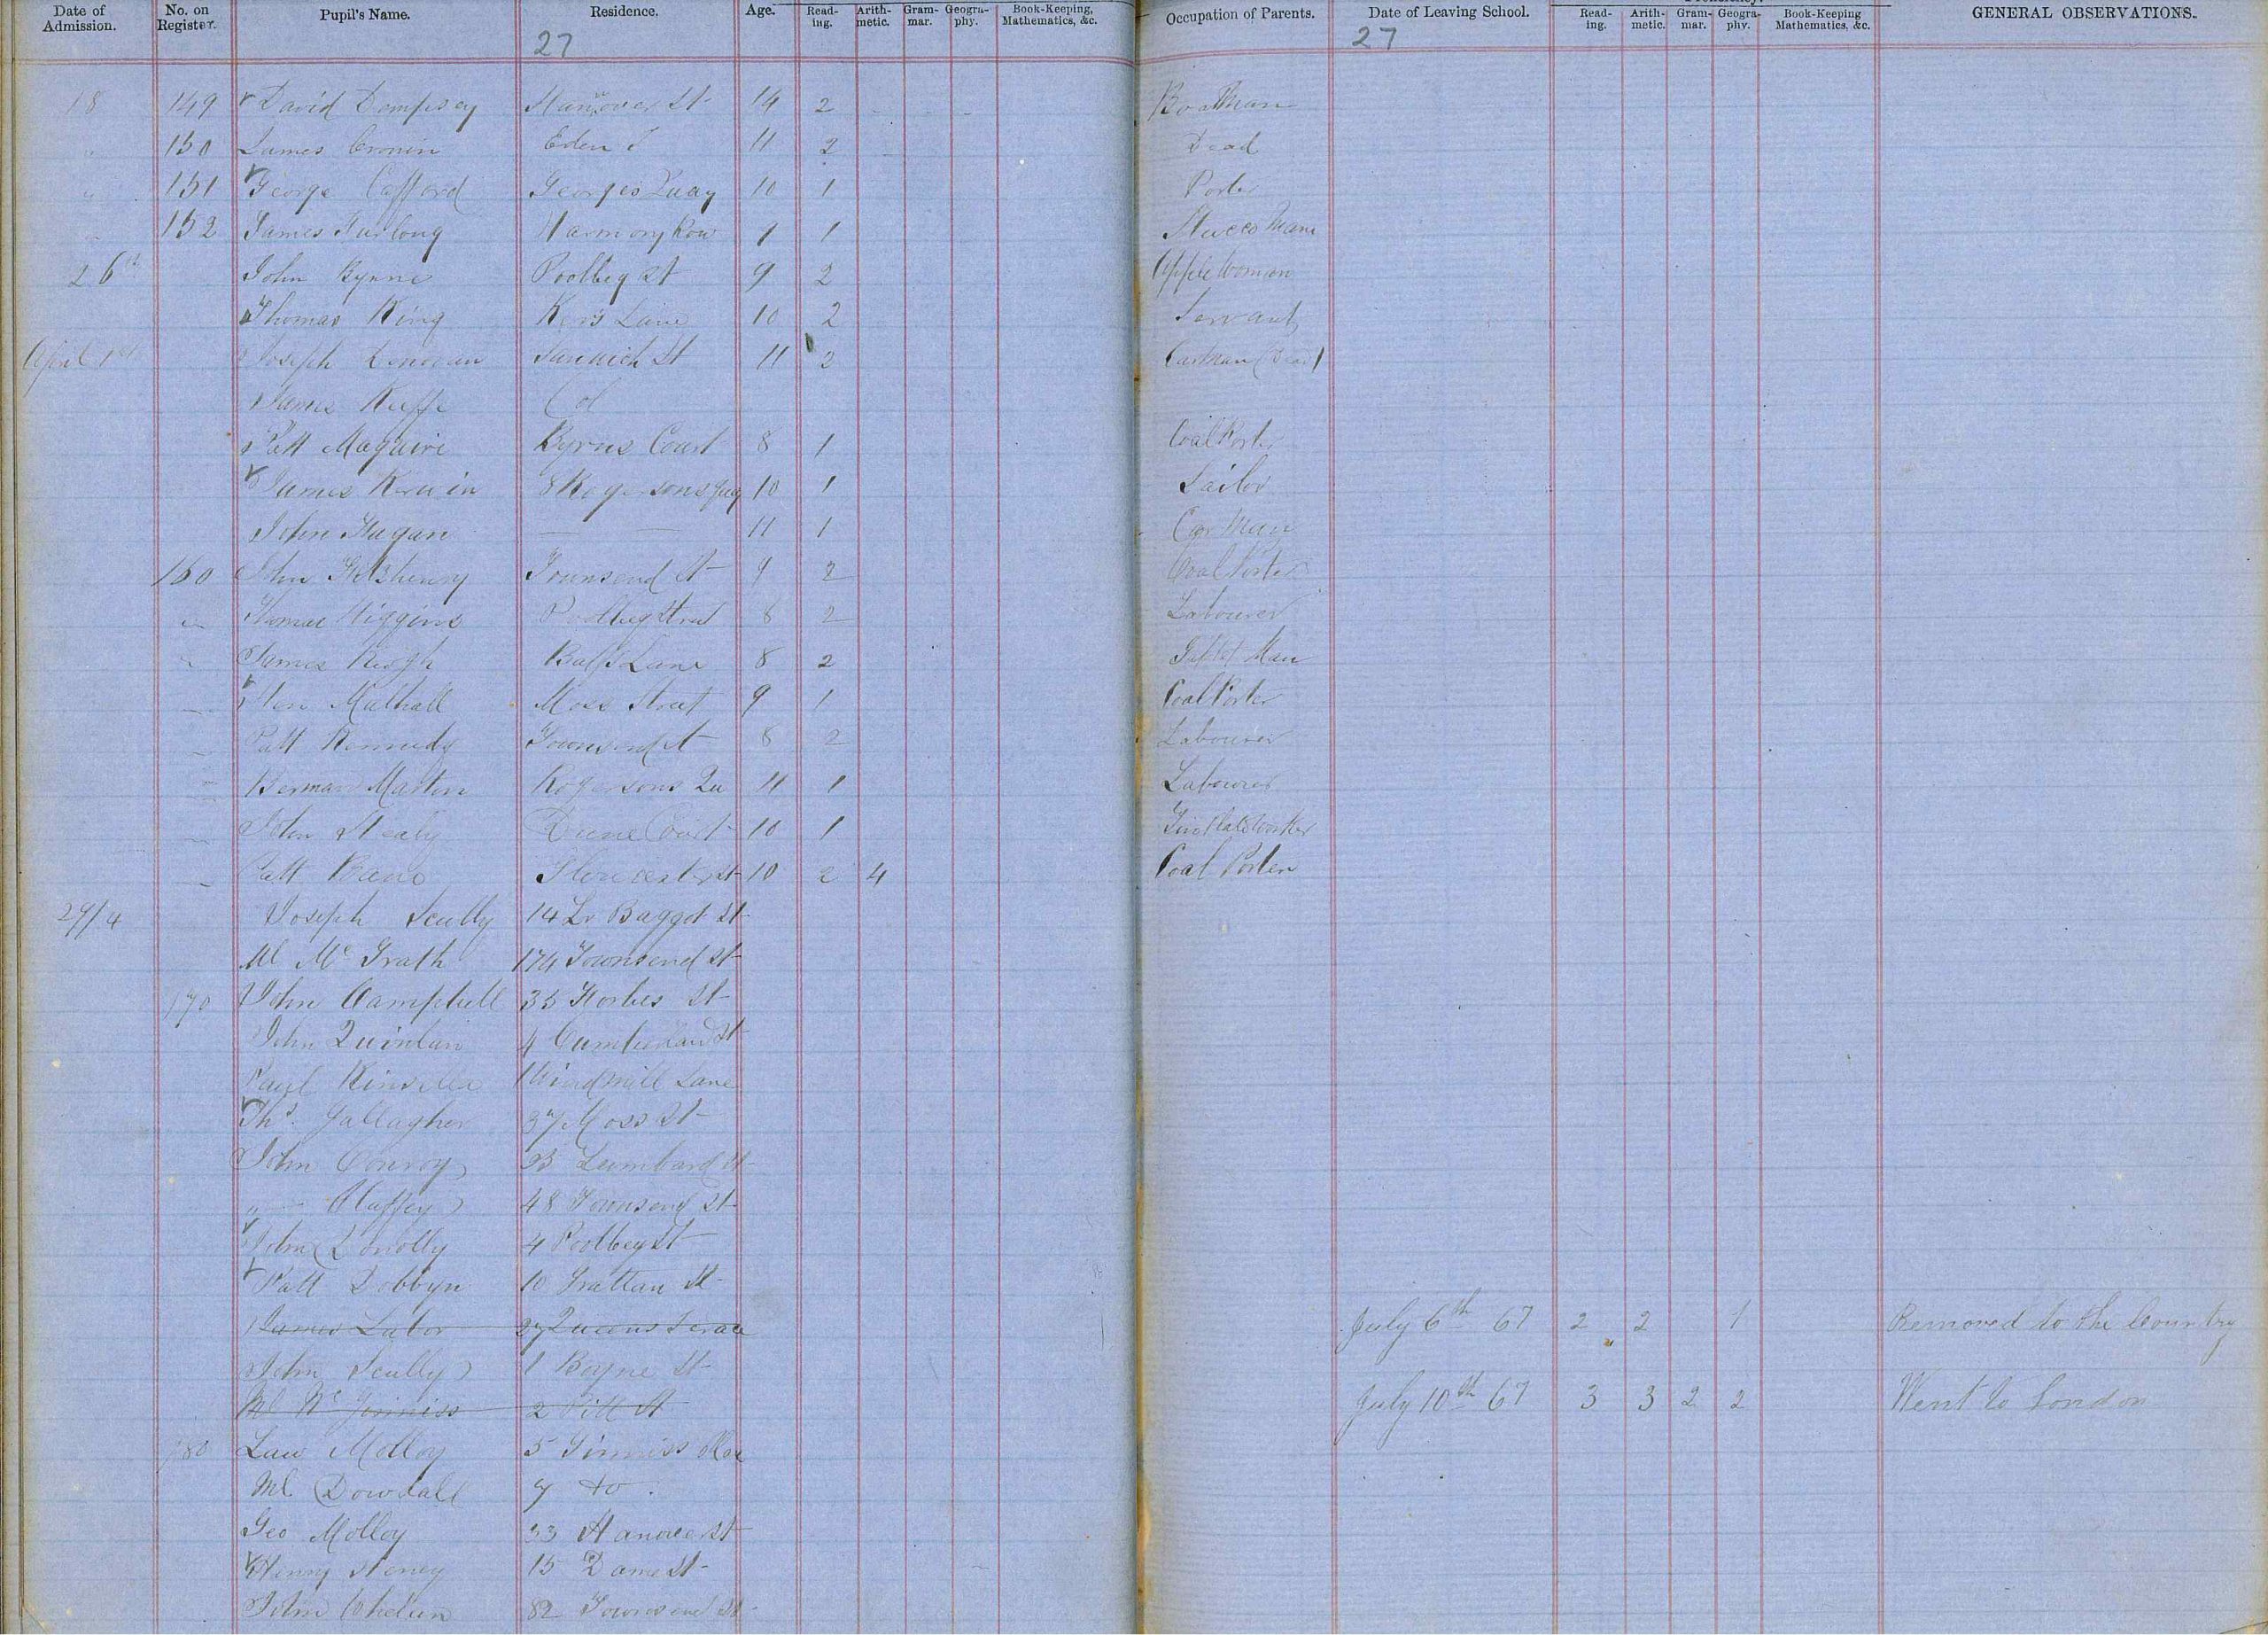 Date of Admission. No. on Register. Pupil's Name. Residence. Age. Reading. Arithmetic. Grammar. Geography. Book-Keeping, Mathematics, &c. Occupation of Parents. Date of Leaving School. Reading. Arithmetic. Grammar. Geography. Book-Keeping Mathematics, &c. GENERAL OBSERVATIONS.
27 27
18 149 David Dempsey Hanover St 14 2 Boatman
" 150 James Cronin Eden 11 2 Dead
" 151 George Cafford Georges Quay 10 1 Porter
" 152 James Furlong Harmony Row 1 Stucco Man
26th John Byrne Poolbeg St 9 2 Apple Woman
Thomas King Kers Lane 10 2 Servant
April 1st Joseph Donovan St 11 2 Carman (Dead)
James Keeffe
Patt Maguire Byrnes Court 8 1 Coal Porter
James Kerwin 8 Rogersons Quy 10 1 Sailor
John Hagan — — 11 1 Car Man
160 John Townsend St 9 2 Coal Porter
" Thomas Higgins Poolbeg Street 8 2 Labourer
" James Keogh Lane 8 2 Man
Mulhall Moss Street 9 1 Coal Porter
Patt Kennedy Townsend St 8 2 Labourer
" Martin Rogersons Qu 11 1 Labourer
John Healy Court 10 1 Tin Plate Worker
Patt Kane Gloucester St 10 2 4 Coal Porter
29/4 Joseph Scully 14 Lr Baggot St
Ml McGrath 174 Townsend St
170 John Campbell 35 Forbes St
John Quinlan 4 Cumberland St
Paul Kinsella Windmill Lane
Thos. Gallagher 37 Moss St
John Conroy Lombard St
" Claffey 48 Townsend St
John Conolly 4 Poolbeg St
Patt Dobbyn 10 Grattan St
James Lalor 27 Queens Terace July 6th 67 2 2 1 Removed to the Country
John Scully 1 Boyne St
Ml McGinniss 2 Pitt St July 10th 67 3 3 2 2 Went to London
180 Law Molloy 5 Ginniss Place
Ml Dowdall 7 do.
Geo Molloy 33 Hanover St
Henry Heney 15 Dame St
John Whelan 82 Townsend St